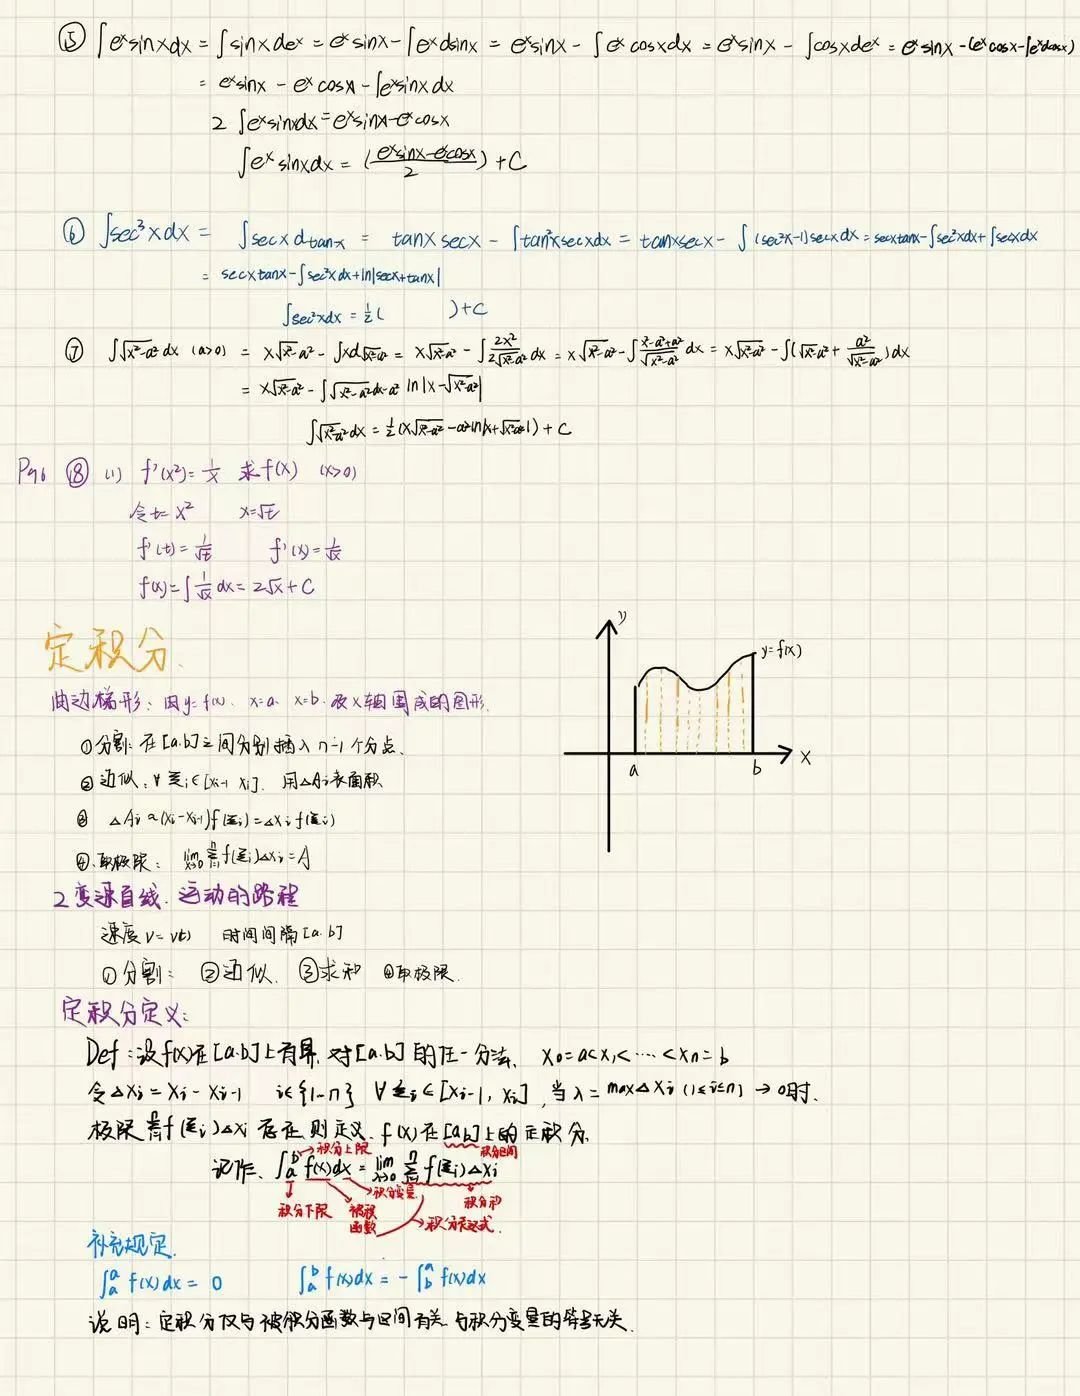 ⑤ ∫eˣsinxdx = ∫sinxdeˣ = eˣsinx-∫eˣdsinx = eˣsinx - ∫eˣcosxdx = eˣsinx - ∫cosxdeˣ = eˣsinx-(eˣcosx-∫eˣdcosx)
= eˣsinx - eˣcosx-∫eˣsinxdx
2∫eˣsinxdx=eˣsinx-eˣcosx
∫eˣsinxdx = (eˣsinx-eˣcosx/2)+C
⑥ ∫sec³xdx = ∫secxdtanx = tanxsecx - ∫tan²xsecxdx = tanxsecx - ∫(sec²x-1)secxdx = secxtanx-∫sec³xdx+∫secxdx
= secxtanx-∫sec³xdx+ln|secx+tanx|
∫sec³xdx = ½( )+C
⑦ ∫√x²-a² dx (a>0) = x√x²-a² - ∫xd√x²-a² = x√x²-a² - ∫2x²/2√x²-a² dx = x√x²-a² - ∫x²-a²+a²/√x²-a² dx = x√x²-a² - ∫(√x²-a² + a²/√x²-a²)dx
= x√x²-a² - ∫√x²-a²dx-a² ln|x-√x²-a²|
∫√x²-a²dx = ½(x√x²-a² -a²ln|x+√x²-a²|)+C
P⑱ (1) f'(x²)=1/x 求f(x) (x>0)
令t=x² x=√t
f'(t)=1/√t f'(x)=1/√x
f(x)=∫1/√x dx=2√x+C
定积分.
曲边梯形:由y=f(x). x=a. x=b.及x轴围成的图形.
①分割:在[a.b]之间分别插入n-1个分点.
②近似:∀ξi∈[xi-1 xi]. 用△Ai表面积
③ △Ai≈(xi-xi-1)f(ξi)=△xif(ξi)
④.取极限: lim Σf(ξi)△xi=A
y
y=f(x)
a b x
2变速直线.运动的路程
速度v=v(t) 时间间隔[a.b]
①分割: ②近似. ③求和 ④取极限.
定积分定义:
Def:设f(x)在[a.b]上有界.对[a.b]的任一分法. x₀=a<x₁<…<xn=b
令△xi=xi-xi-1 i∈{1-n} ∀ξi∈[xi-1, xi],当λ=max△xi (1≤i≤n)→0时.
极限Σf(ξi)△xi存在.则定义.f(x)在[a,b]上的定积分.
积分上限 积分区间
记作.∫ₐᵇf(x)dx=lim λ→0 Σf(ξi)△xi
积分变量 积分和
积分下限 被积函数 积分表达式.
补充规定.
∫ₐᵃf(x)dx=0 ∫ₐᵇf(x)dx=-∫ᵇᵃf(x)dx
说明:定积分仅与被积分函数与区间有关.与积分变量的符号无关.